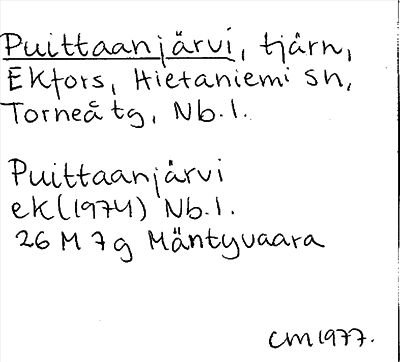 Puittaanjärvi, tjärn,
Ekfors, Hietaniemi sn,
Torneå tg, Nb.l.
Puittaanjärvi
ek (1974) Nb.l.
26 M 7g Mäntyvaara
CM 1977.